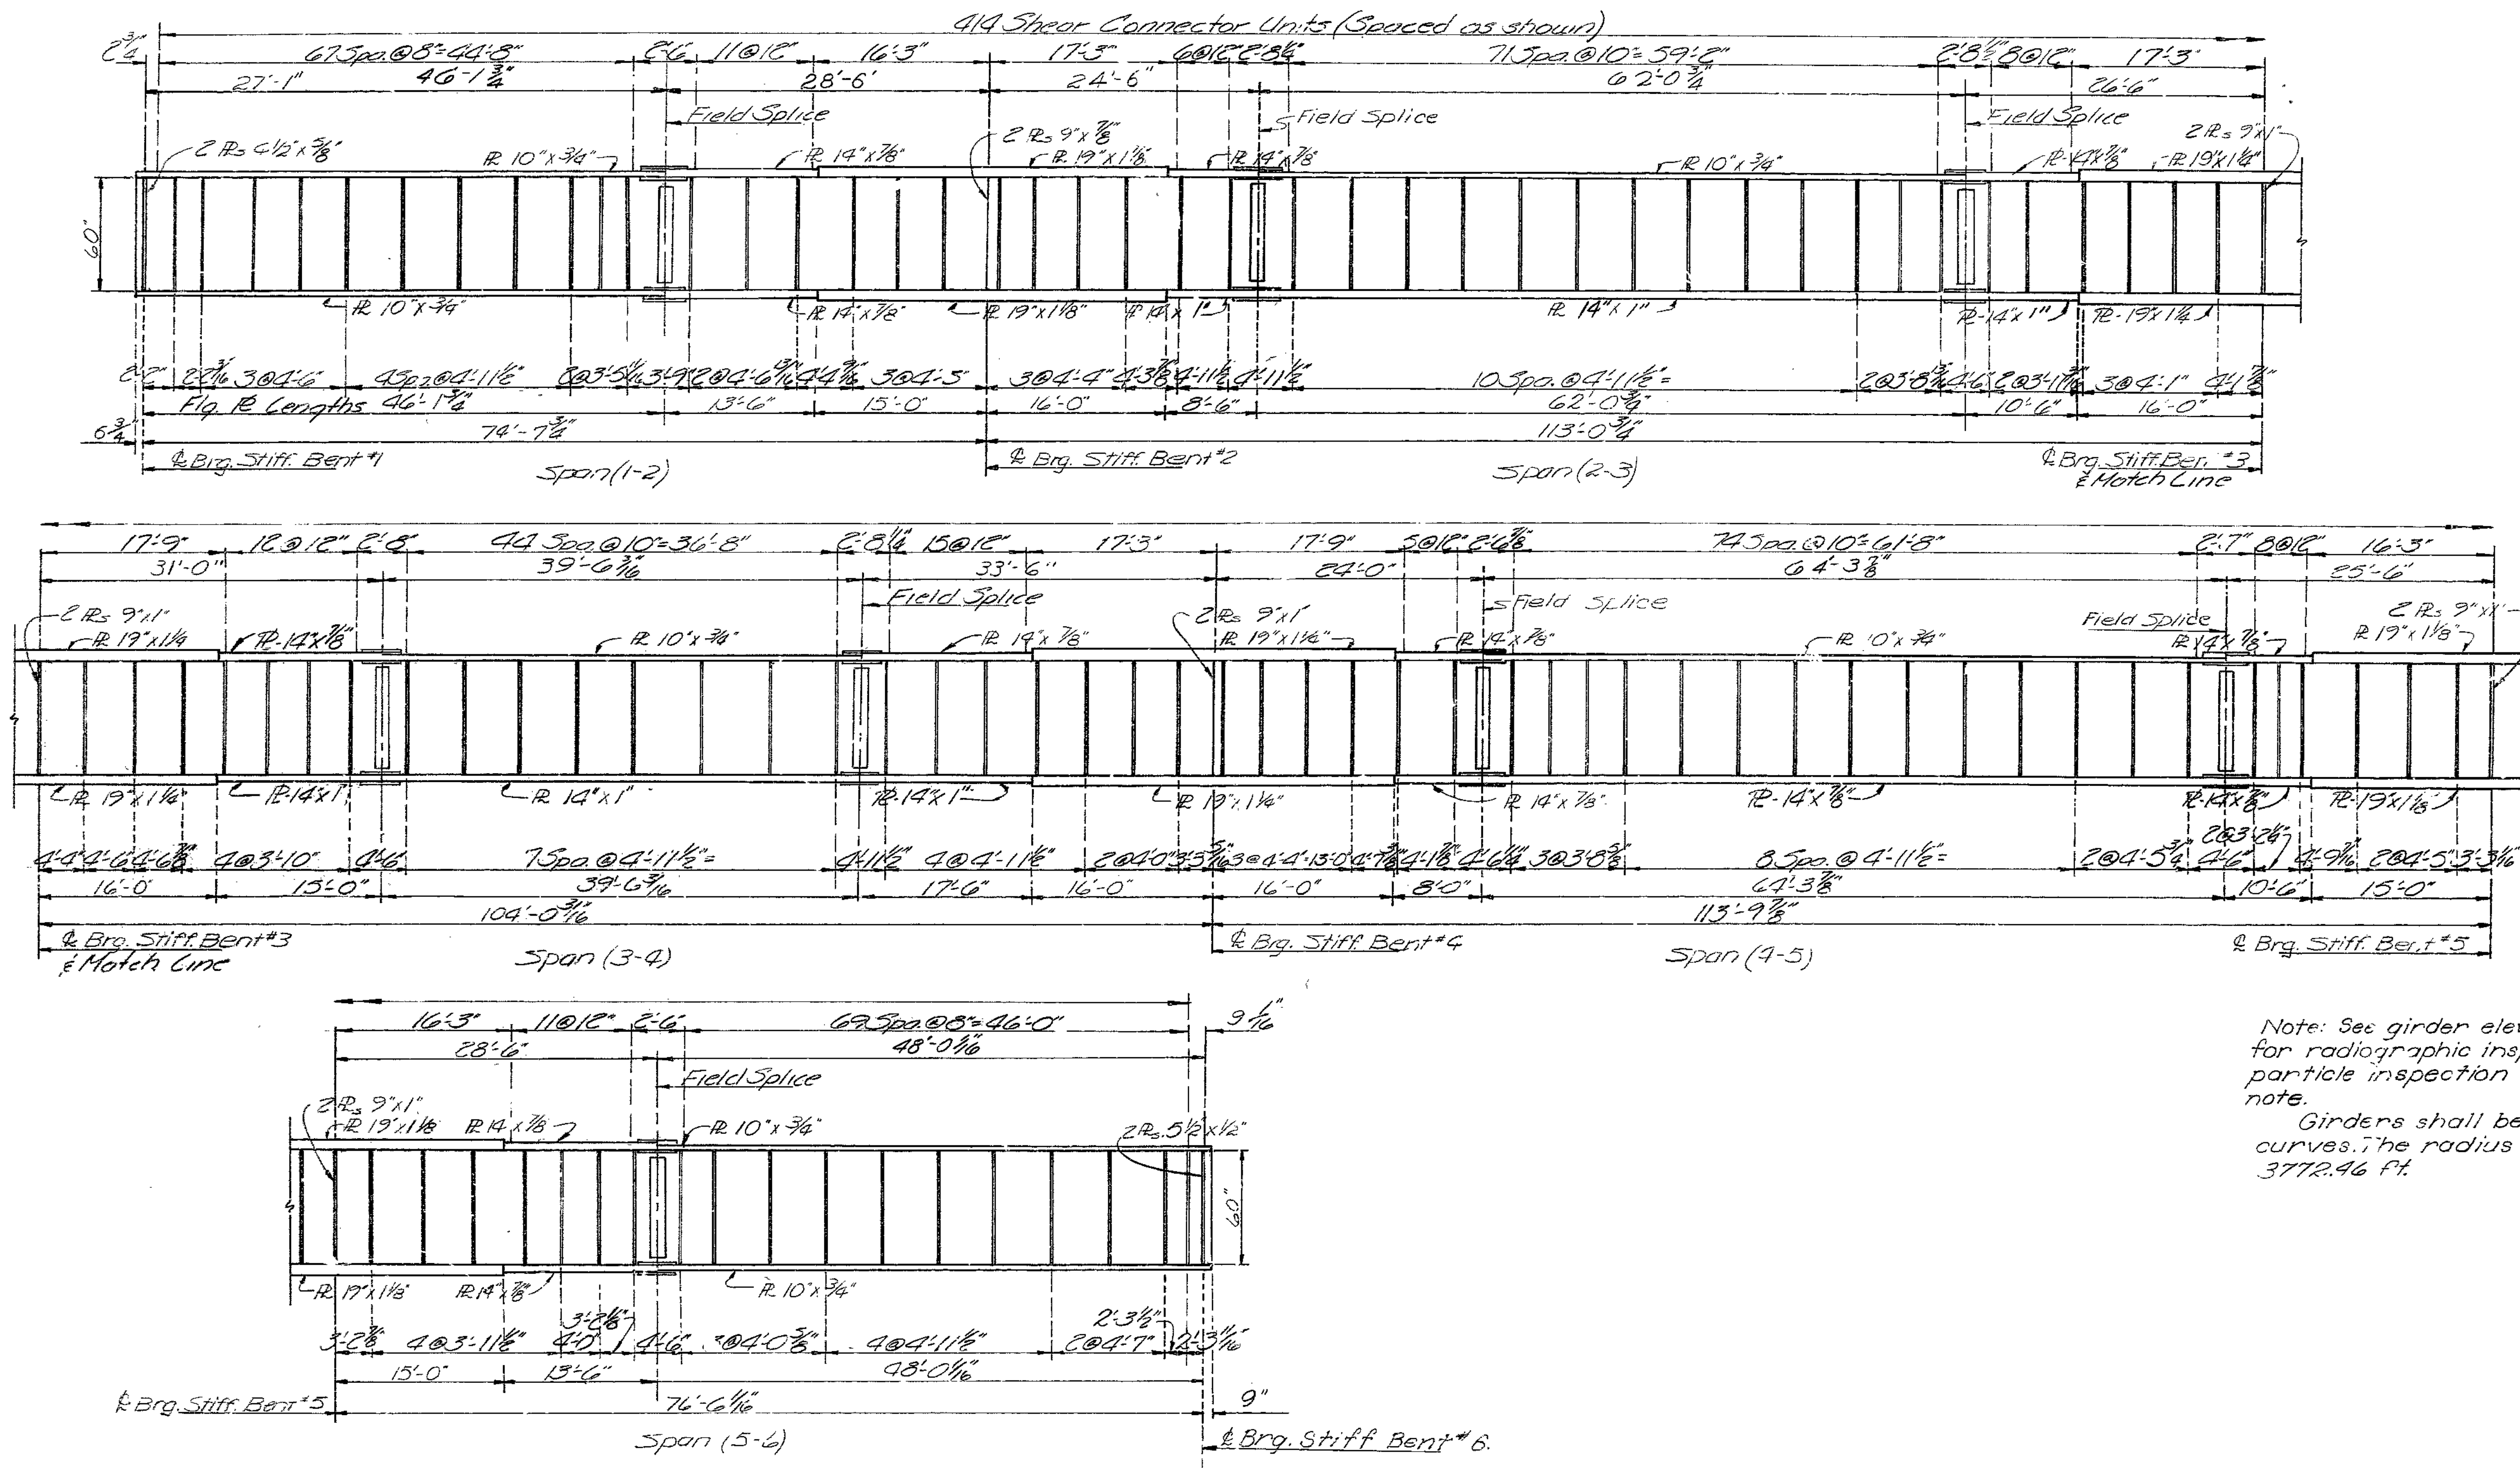 414 Shear Connector Units (Spaced as shown)
2 3/4" 67 Spa. @ 8" = 44'-8" 2'-6" 11 @ 12" 16'-3" 17'-3" 6 @ 12" 2'-8 1/4" 71 Spa. @ 10" = 59'-2" 2'-8 1/2" 8 @ 12" 17'-3"
27'-1" 46'-1 3/4" 28'-6" 24'-6" 62'-0 3/4" 26'-6"
Field Splice Field Splice Field Splice
2 ℞s 4 1/2" x 5/8" ℞ 10" x 3/4" ℞ 14" x 7/8" 2 ℞s 9" x 7/8" ℞ 19" x 1 1/8" ℞ 14" x 7/8" ℞ 10" x 3/4" ℞-14" x 7/8" ℞ 19" x 1 1/4" 2 ℞s 9" x 1"
60"
℞ 10" x 3/4" ℞ 14" x 7/8" ℞ 19" x 1 1/8" ℞ 14" x 1" ℞ 14" x 1" ℞-14" x 1" ℞-19" x 1 1/4"
2'-2" 2'-2 3/16" 3 @ 4'-6" 4 Spa. @ 4'-11 1/2" 2 @ 3'-5 1/16" 3'-9" 2 @ 4'-6 13/16" 4'-4 9/16" 3 @ 4'-5" 3 @ 4'-4" 4'-3 7/8" 4'-11 1/2" 4'-11 1/2" 10 Spa. @ 4'-11 1/2" = 2 @ 3'-8 13/16" 4'-6" 3 @ 4'-1" 4'-1 7/8"
Flg. ℞ Lengths 46'-1 3/4" 13'-6" 15'-0" 16'-0" 8'-6" 62'-0 3/4" 10'-6" 16'-0"
6 3/4" 74'-7 3/4" 113'-0 3/4"
℄ Brg. Stiff. Bent #1 Span (1-2) ℄ Brg. Stiff. Bent #2 Span (2-3) ℄ Brg. Stiff. Ben. #3
& Match Line
17'-9" 12 @ 12" 2'-8" 44 Spa. @ 10" = 36'-8" 2'-8 1/4" 15 @ 12" 17'-3" 17'-9" 5 @ 12" 2'-6 7/8" 74 Spa. @ 10" = 61'-8" 2'-7" 8 @ 12" 16'-3"
31'-0" 39'-6 3/16" 33'-6" 24'-0" 64'-3 7/8" 25'-6"
Field Splice Field Splice Field Splice
2 ℞s 9" x 1" 2 ℞s 9" x 1" 2 ℞s 9" x 1"
℞ 19" x 1 1/4 ℞-14" x 7/8" ℞ 10" x 3/4" ℞ 14" x 7/8" ℞ 19" x 1 1/4" ℞ 14" x 7/8" ℞ 10" x 3/4" ℞ 14" x 7/8" ℞ 19" x 1 1/8"
℞ 19" x 1 1/4" ℞-14 x 1" ℞ 14" x 1" ℞-14" x 1" ℞ 19" x 1 1/4" ℞ 14" x 7/8" ℞-14" x 7/8" ℞-14" x 7/8" ℞-19" x 1 1/8"
2 @ 3'-2 1/4"
4'-4" 4'-6" 4'-6 7/8" 4 @ 3'-10" 4'-6" 7 Spa. @ 4'-11 1/2" = 4'-11 1/2" 4 @ 4'-11 1/2" 2 @ 4'-0" 3'-5 5/16" 3 @ 4'-4"=13'-0" 4'-1 7/8" 4'-6 1/4" 3 @ 3'-8 5/8" 8 Spa. @ 4'-11 1/2" = 2 @ 4'-5 3/4" 4'-6" 4'-9 7/16" 2 @ 4'-5" 3'-3 1/16"
16'-0" 15'-0" 39'-6 3/16" 17'-6" 16'-0" 16'-0" 8'-0" 64'-3 7/8" 10'-6" 15'-0"
104'-0 3/16" 113'-9 7/8"
℄ Brg. Stiff. Bent #3 Span (3-4) ℄ Brg. Stiff. Bent #4 Span (4-5) ℄ Brg. Stiff. Bent #5
& Match Line
16'-3" 11 @ 12" 2'-6" 69 Spa. @ 8" = 46'-0" 9 1/16"
28'-6" 48'-0 1/16"
Field Splice
2 ℞s 9" x 1"
℞ 19" x 1 1/8 ℞ 14 x 7/8 ℞ 10" x 3/4" 2 ℞s. 5 1/2" x 1/2"
60"
℞ 19" x 1 1/8" ℞ 14" x 7/8" ℞ 10" x 3/4"
3'-2 1/8" 2'-3 1/2"
3'-2 7/8" 4 @ 3'-11 1/2" 4'-0" 4'-6" 3 @ 4'-0 5/8" 4 @ 4'-11 1/2" 2 @ 4'-7" 2'-3 11/16"
15'-0" 13'-6" 48'-0 1/16"
℄ Brg. Stiff. Bent #5 76'-6 1/16" 9"
Span (5-6) ℄ Brg. Stiff Bent #6.
Note: See girder elev
for radiographic insp
particle inspection
note.
Girders shall be
curves. The radius
3772.46 ft.